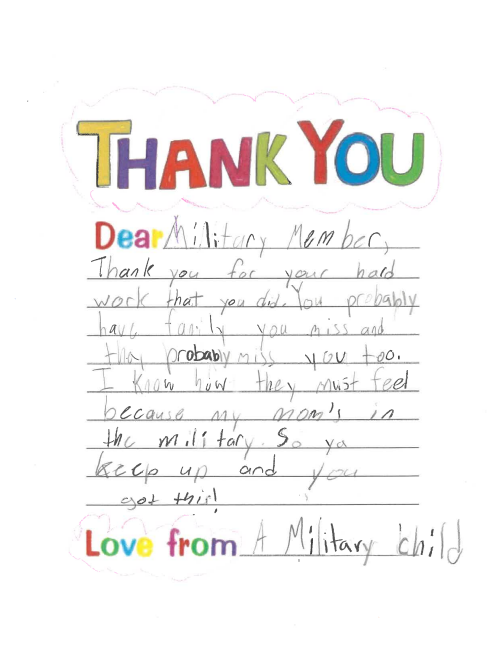 THANK YOU
Dear Military Member,
Thank you for your hard
work that you did. You probably
have family you miss and
they probably miss you too.
I know how they must feel
because my mom's in
the military. So ya
keep up and you
got this!
Love from A Military child